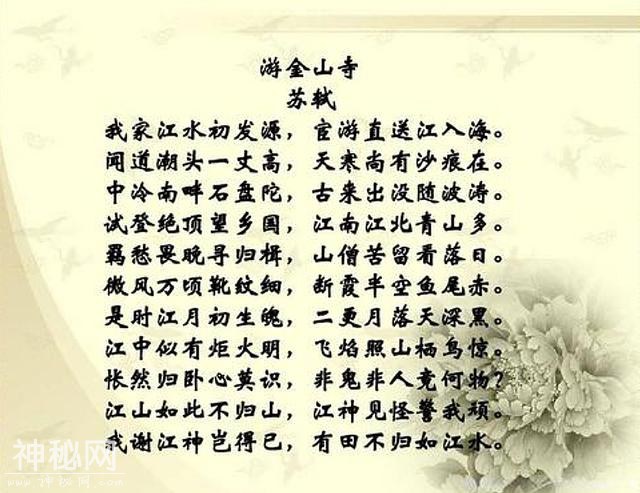 游金山寺
苏轼
我家江水初发源，宦游直送江入海。
闻道潮头一丈高，天寒尚有沙痕在。
中泠南畔石盘陀，古来出没随波涛。
试登绝顶望乡国，江南江北青山多。
羁愁畏晚寻归楫，山僧苦留看落日。
微风万顷靴纹细，断霞半空鱼尾赤。
是时江月初生魄，二更月落天深黑。
江中似有炬火明，飞焰照山栖鸟惊。
怅然归卧心莫识，非鬼非人竟何物？
江山如此不归山，江神见怪警我顽。
我谢江神岂得已，有田不归如江水。
神秘网
www.shenmi.com.cn